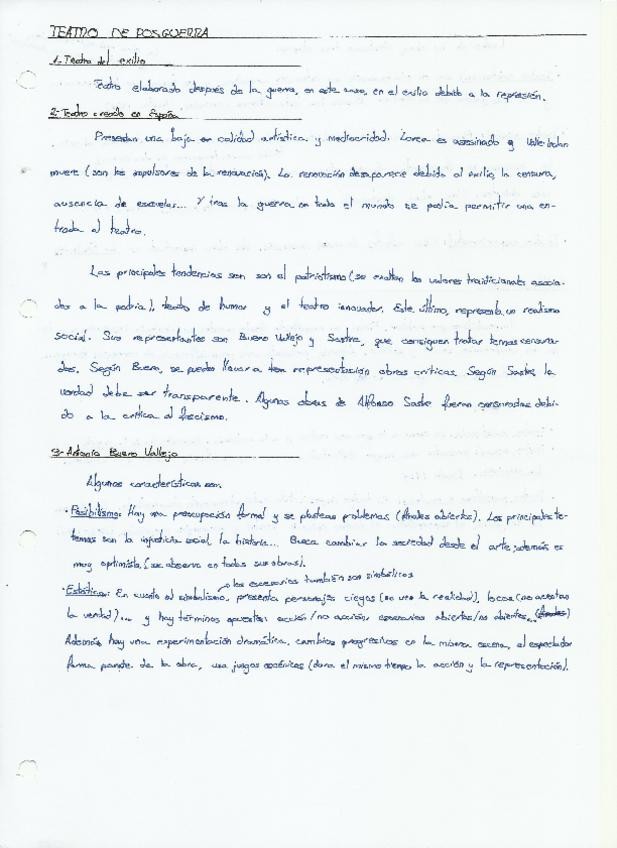 TEATRO DE POSGUERRA
1-Teatro del exilio
Teatro elaborado después de la guerra, en este caso, en el exilio debido a la represión.
2-Teatro creado en España
Presentan una baja en calidad artística y mediocridad. Lorca es asesinado y Valle Inclan
muere (son los impulsores de la renovación). La renovación desaparece debido al exilio, la censura,
ausencia de escuelas... Y tras la guerra en todo el mundo se podía permitir una en-
trada al teatro.
Las principales tendencias son el patriotismo (se exaltan los valores tradicionales asocia-
dos a la patria), teatro de humor y el teatro innovador. Este último, representa un realismo
social. Sus representantes son Buero Vallejo y Sastre, que consiguen tratar temas censura-
dos. Según Buero, se puede llevar a representación obras críticas. Según Sastre, la
verdad debe ser transparente. Algunas obras de Alfonso Sastre fueron censuradas debi-
do a la crítica al fascismo.
3-Antonio Buero Vallejo
Algunas características son:
· Posibilismo: Hay una preocupación formal y se plantean problemas (finales abiertos). Los principales te-
temas son la injusticia social, la historia... Busca cambiar la sociedad desde el arte, además es
muy optimista, (se observa en todas sus obras).
→ los escenarios también son simbólicos
· Estéticos: En cuanto al simbolismo, presenta personajes ciegos (no ven la realidad), locos (no aceptan
la verdad)... y hay términos opuestos: acción/no acción, escenarios abiertos/no abiertos...
Además hay una experimentación dramática, cambios progresivos en la misma escena, el espectador
forma parte de la obra, usa juegos escénicos (dura el mismo tiempo la acción y la representación).